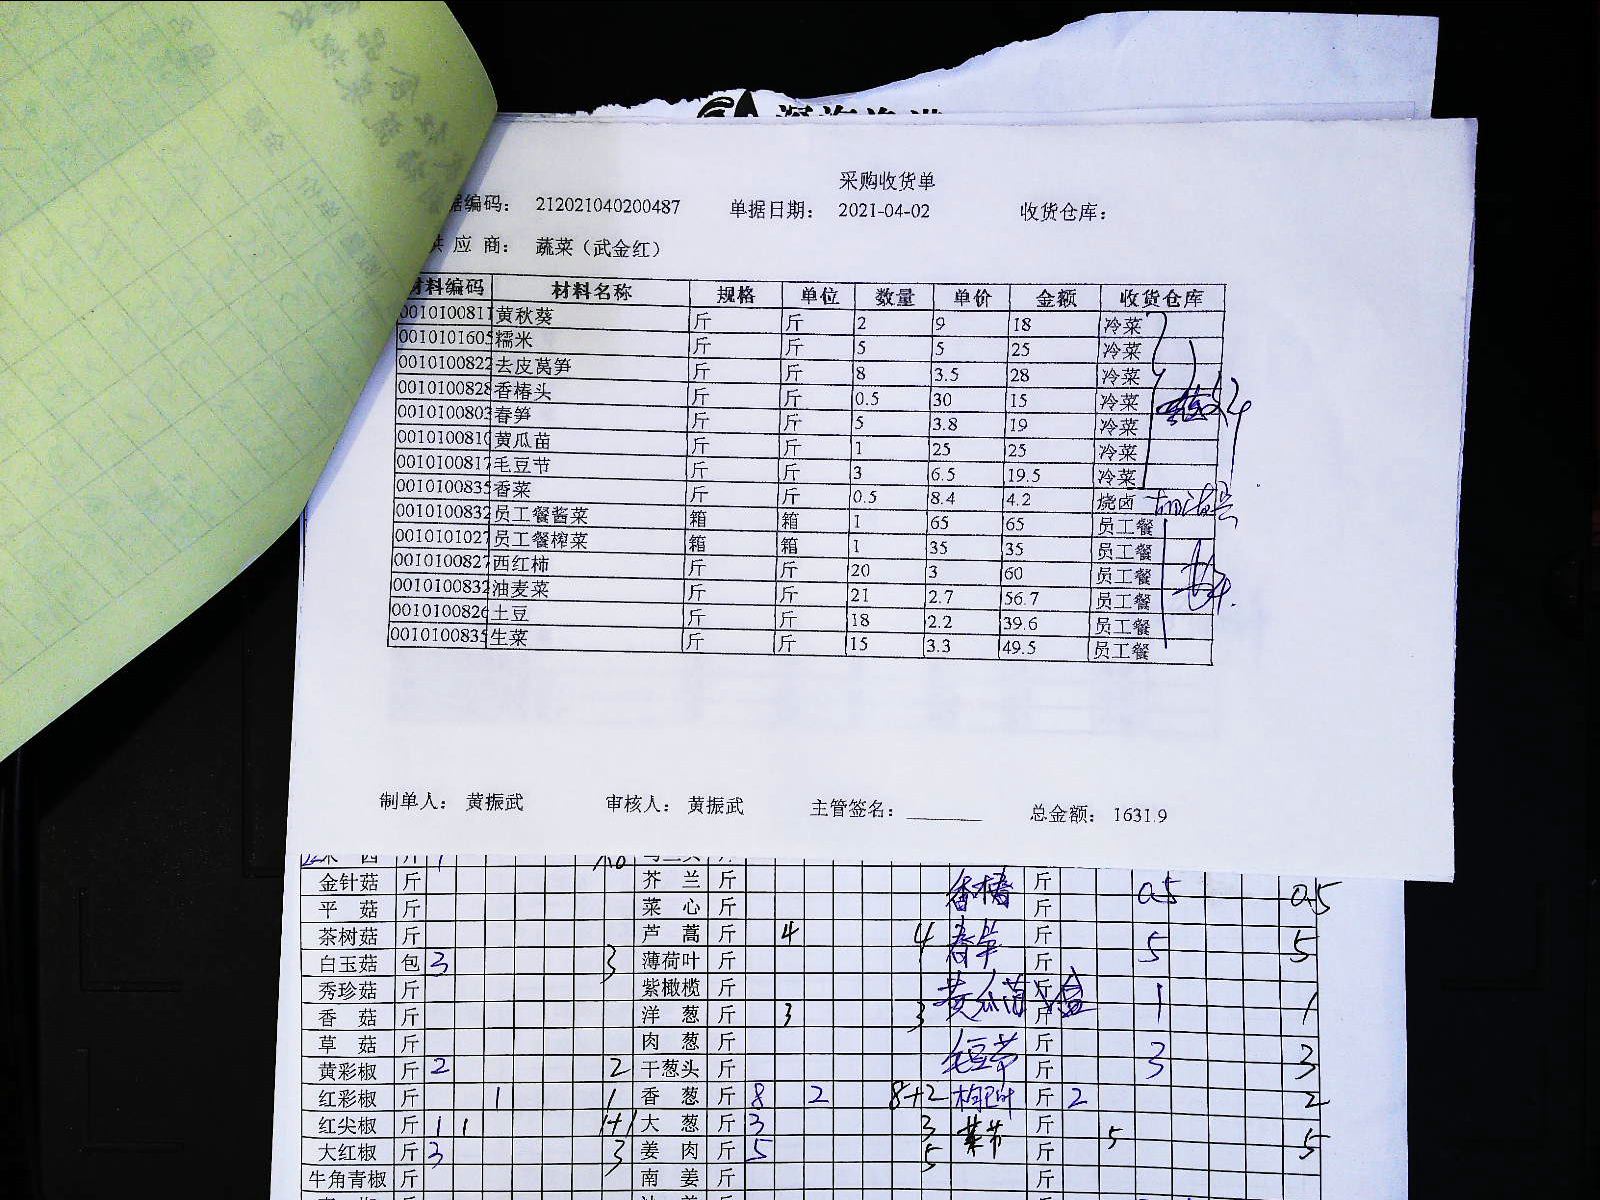 采购收货单
据编码： 212021040200487 单据日期： 2021-04-02 收货仓库：
供 应 商： 蔬菜（武金红）
材料编码 材料名称 规格 单位 数量 单价 金额 收货仓库
0010100811 黄秋葵 斤 斤 2 9 18 冷菜
0010101605 糯米 斤 斤 5 5 25 冷菜
0010100822 去皮莴笋 斤 斤 8 3.5 28 冷菜
0010100828 香椿头 斤 斤 0.5 30 15 冷菜
0010100803 春笋 斤 斤 5 3.8 19 冷菜
0010100810 黄瓜苗 斤 斤 1 25 25 冷菜
0010100817 毛豆节 斤 斤 3 6.5 19.5 冷菜
0010100835 香菜 斤 斤 0.5 8.4 4.2 烧卤
0010100832 员工餐酱菜 箱 箱 1 65 65 员工餐
0010101027 员工餐榨菜 箱 箱 1 35 35 员工餐
0010100827 西红柿 斤 斤 20 3 60 员工餐
0010100832 油麦菜 斤 斤 21 2.7 56.7 员工餐
0010100826 土豆 斤 斤 18 2.2 39.6 员工餐
0010100835 生菜 斤 斤 15 3.3 49.5 员工餐
制单人： 黄振武 审核人： 黄振武 主管签名： 总金额： 1631.9
金针菇 斤 芥 兰 斤 香椿 斤 0.5 0.5
平 菇 斤 菜 心 斤 斤
茶树菇 斤 芦 蒿 斤 4 4 春笋 斤 5 5
白玉菇 包 3 3 薄荷叶 斤 斤
秀珍菇 斤 紫橄榄 斤 黄瓜苗 斤 1 1
香 菇 斤 洋 葱 斤 3 3 斤
草 菇 斤 肉 葱 斤 毛豆节 斤 3 3
黄彩椒 斤 2 2 干葱头 斤 斤
红彩椒 斤 1 1 香 葱 斤 8 2 8+2 斤 2 2
红尖椒 斤 1 1 1+1 大 葱 斤 3 3 斤 5 5
大红椒 斤 3 3 姜 肉 斤 5 5 斤
牛角青椒 斤 南 姜 斤 斤